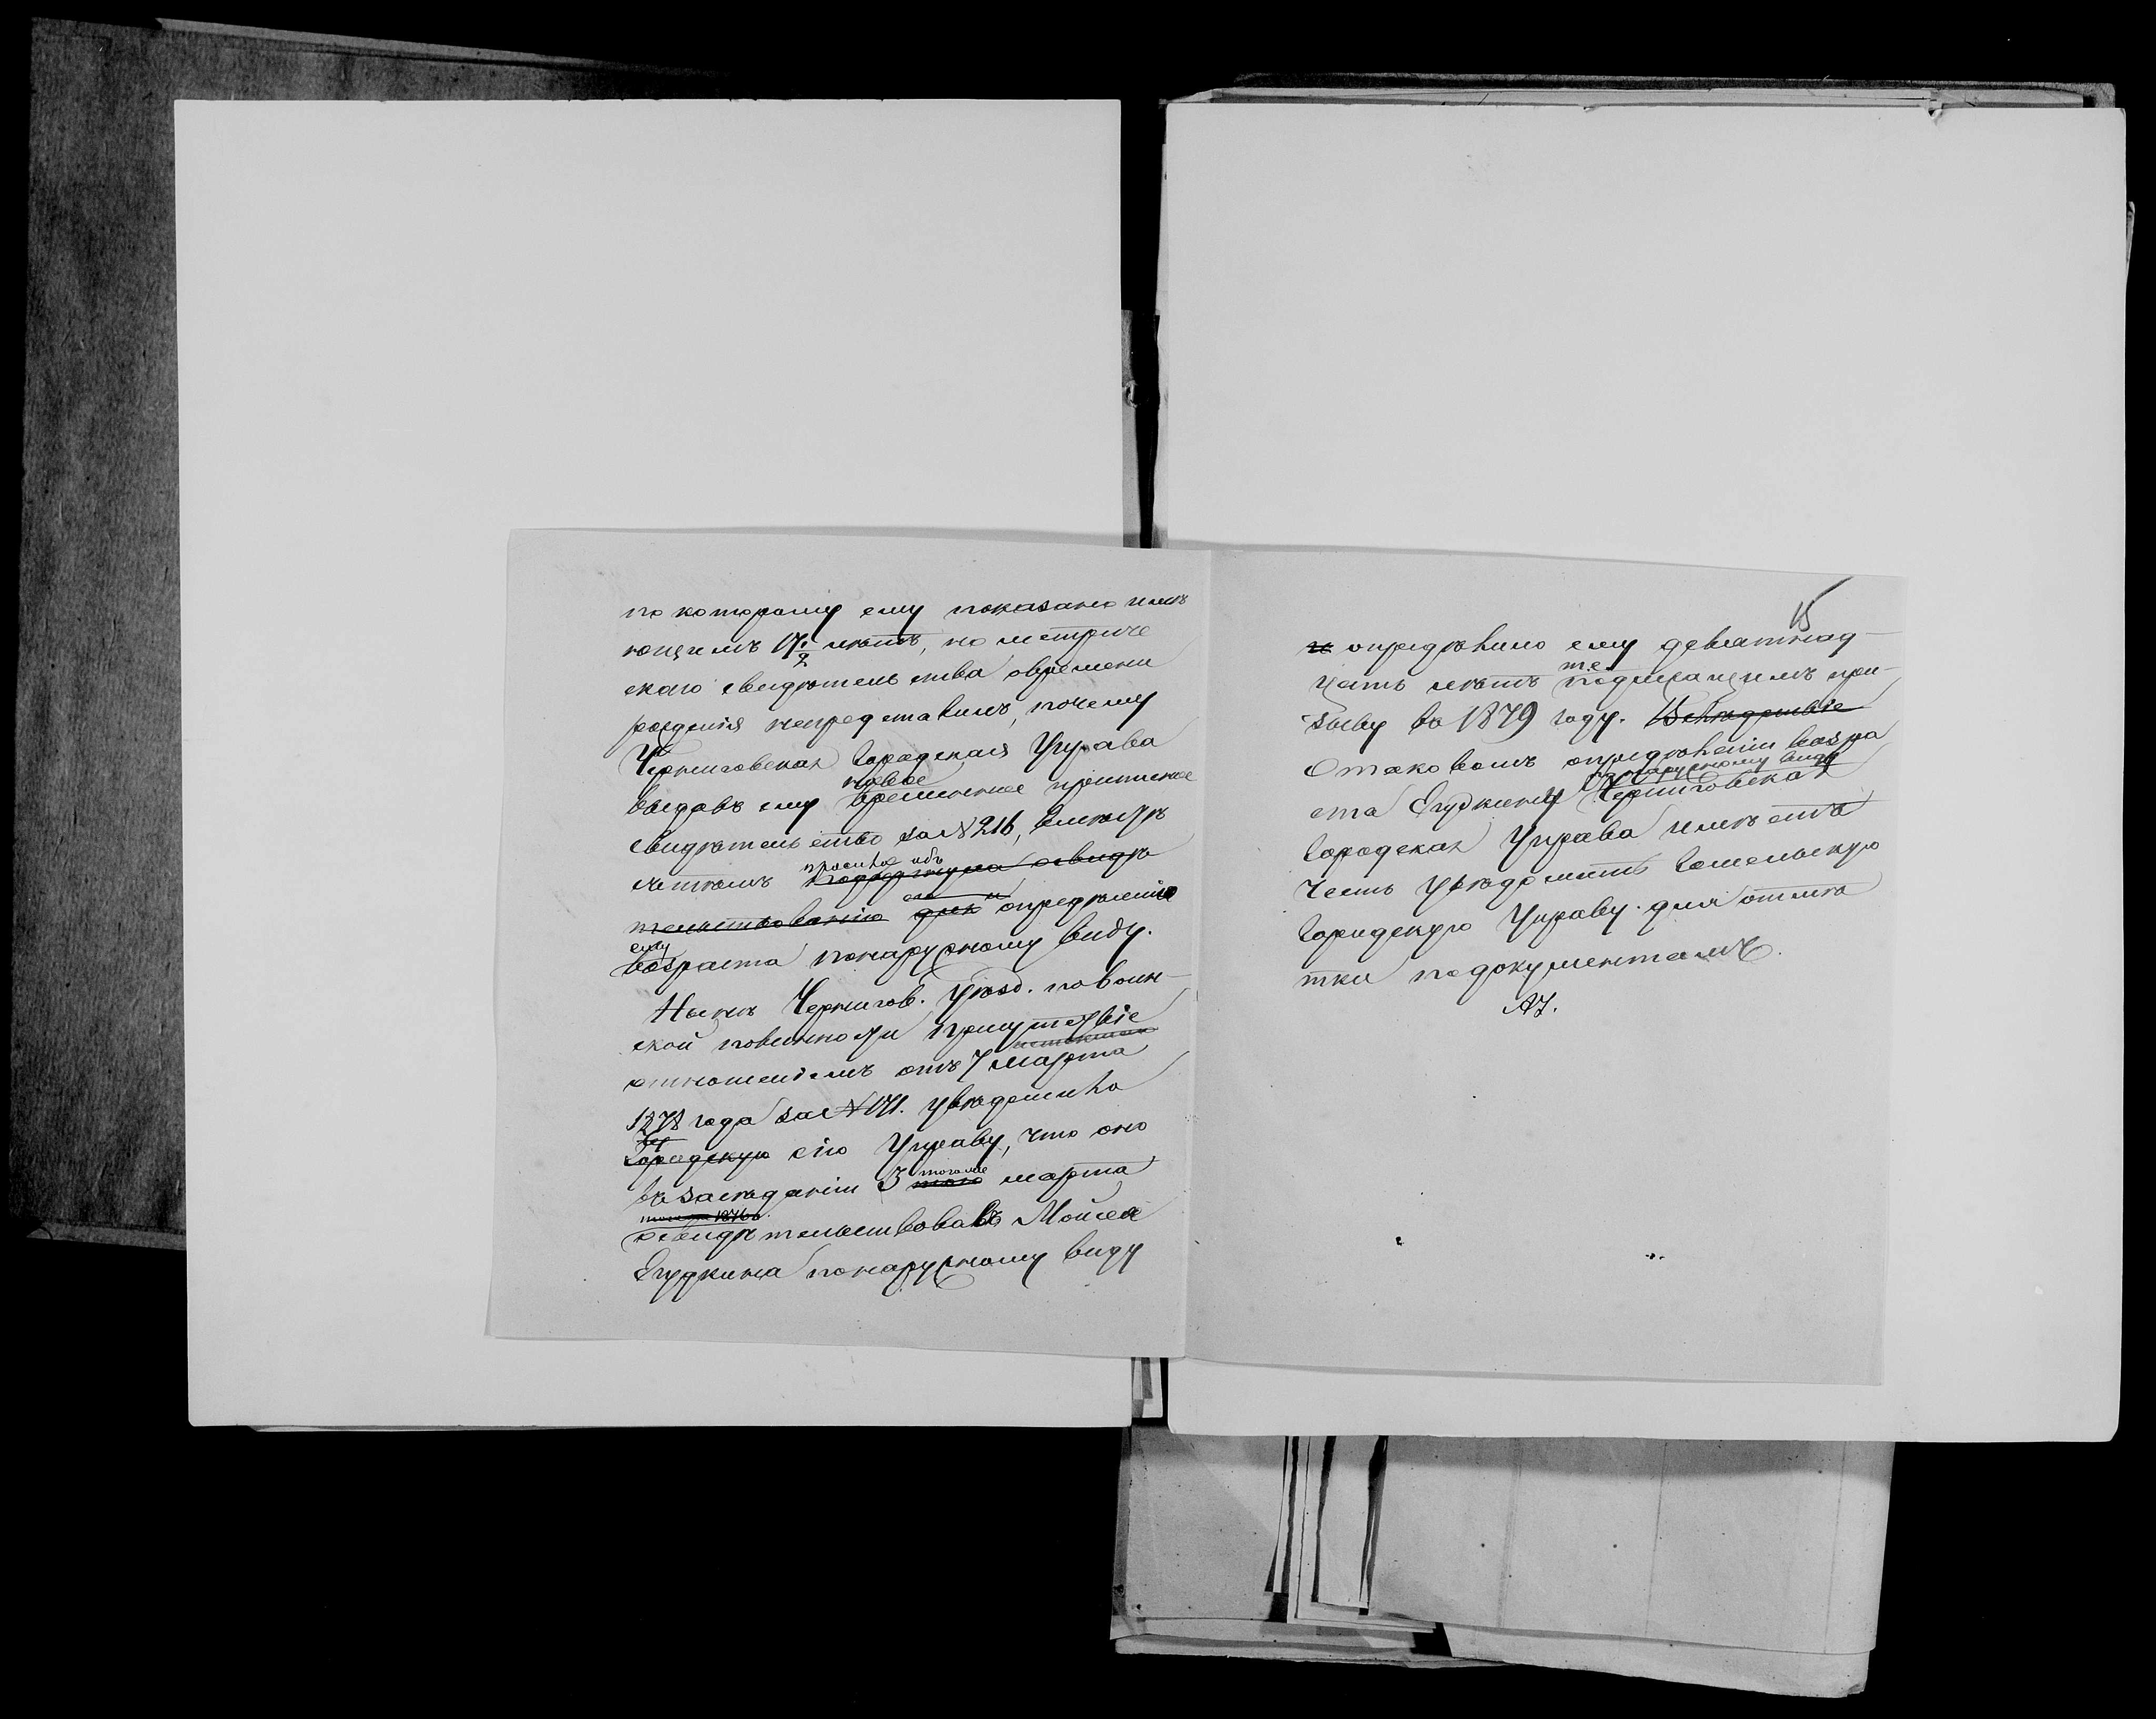 по которому ему показано имѣ
ющимъ 17 1/2 лѣтъ, но метриче
скаго свидѣтельства овремени
рожденія непредставилъ, почему
Черниговская Городская Управа
новое
выдавъ ему временное приписное
свидѣтельство за № 216, вмѣстѣ
просила объ
съ тѣмъ подвергнула освидѣ
тельствованію для опредѣленіи
ему
возраста понаружному виду.
Нынѣ Чернигов. Уѣзд. повоин-
ской повинности присутствіе
отношеніемъ отъ 7 марта
1878 года за № 171. увѣдомило
Городскую сію Управу, что оно
тогоже
въ засѣданіи 3 того марта
освидѣтельствовавъ Мойсея
Ягудкина понаружному виду
15
и опредѣлило ему девятнад-
цать лѣтъ т. е. подлежащимъ при-
зыву въ 1879 году. Вслѣдствіе
Отаковомъ опредѣленіи возра
понаружному виду
ста Ягудкину Черниговская
Городская Управа имѣетъ
честь увѣдомить Гомельскую
Городскую Управу для отмѣ
тки подокументамъ.